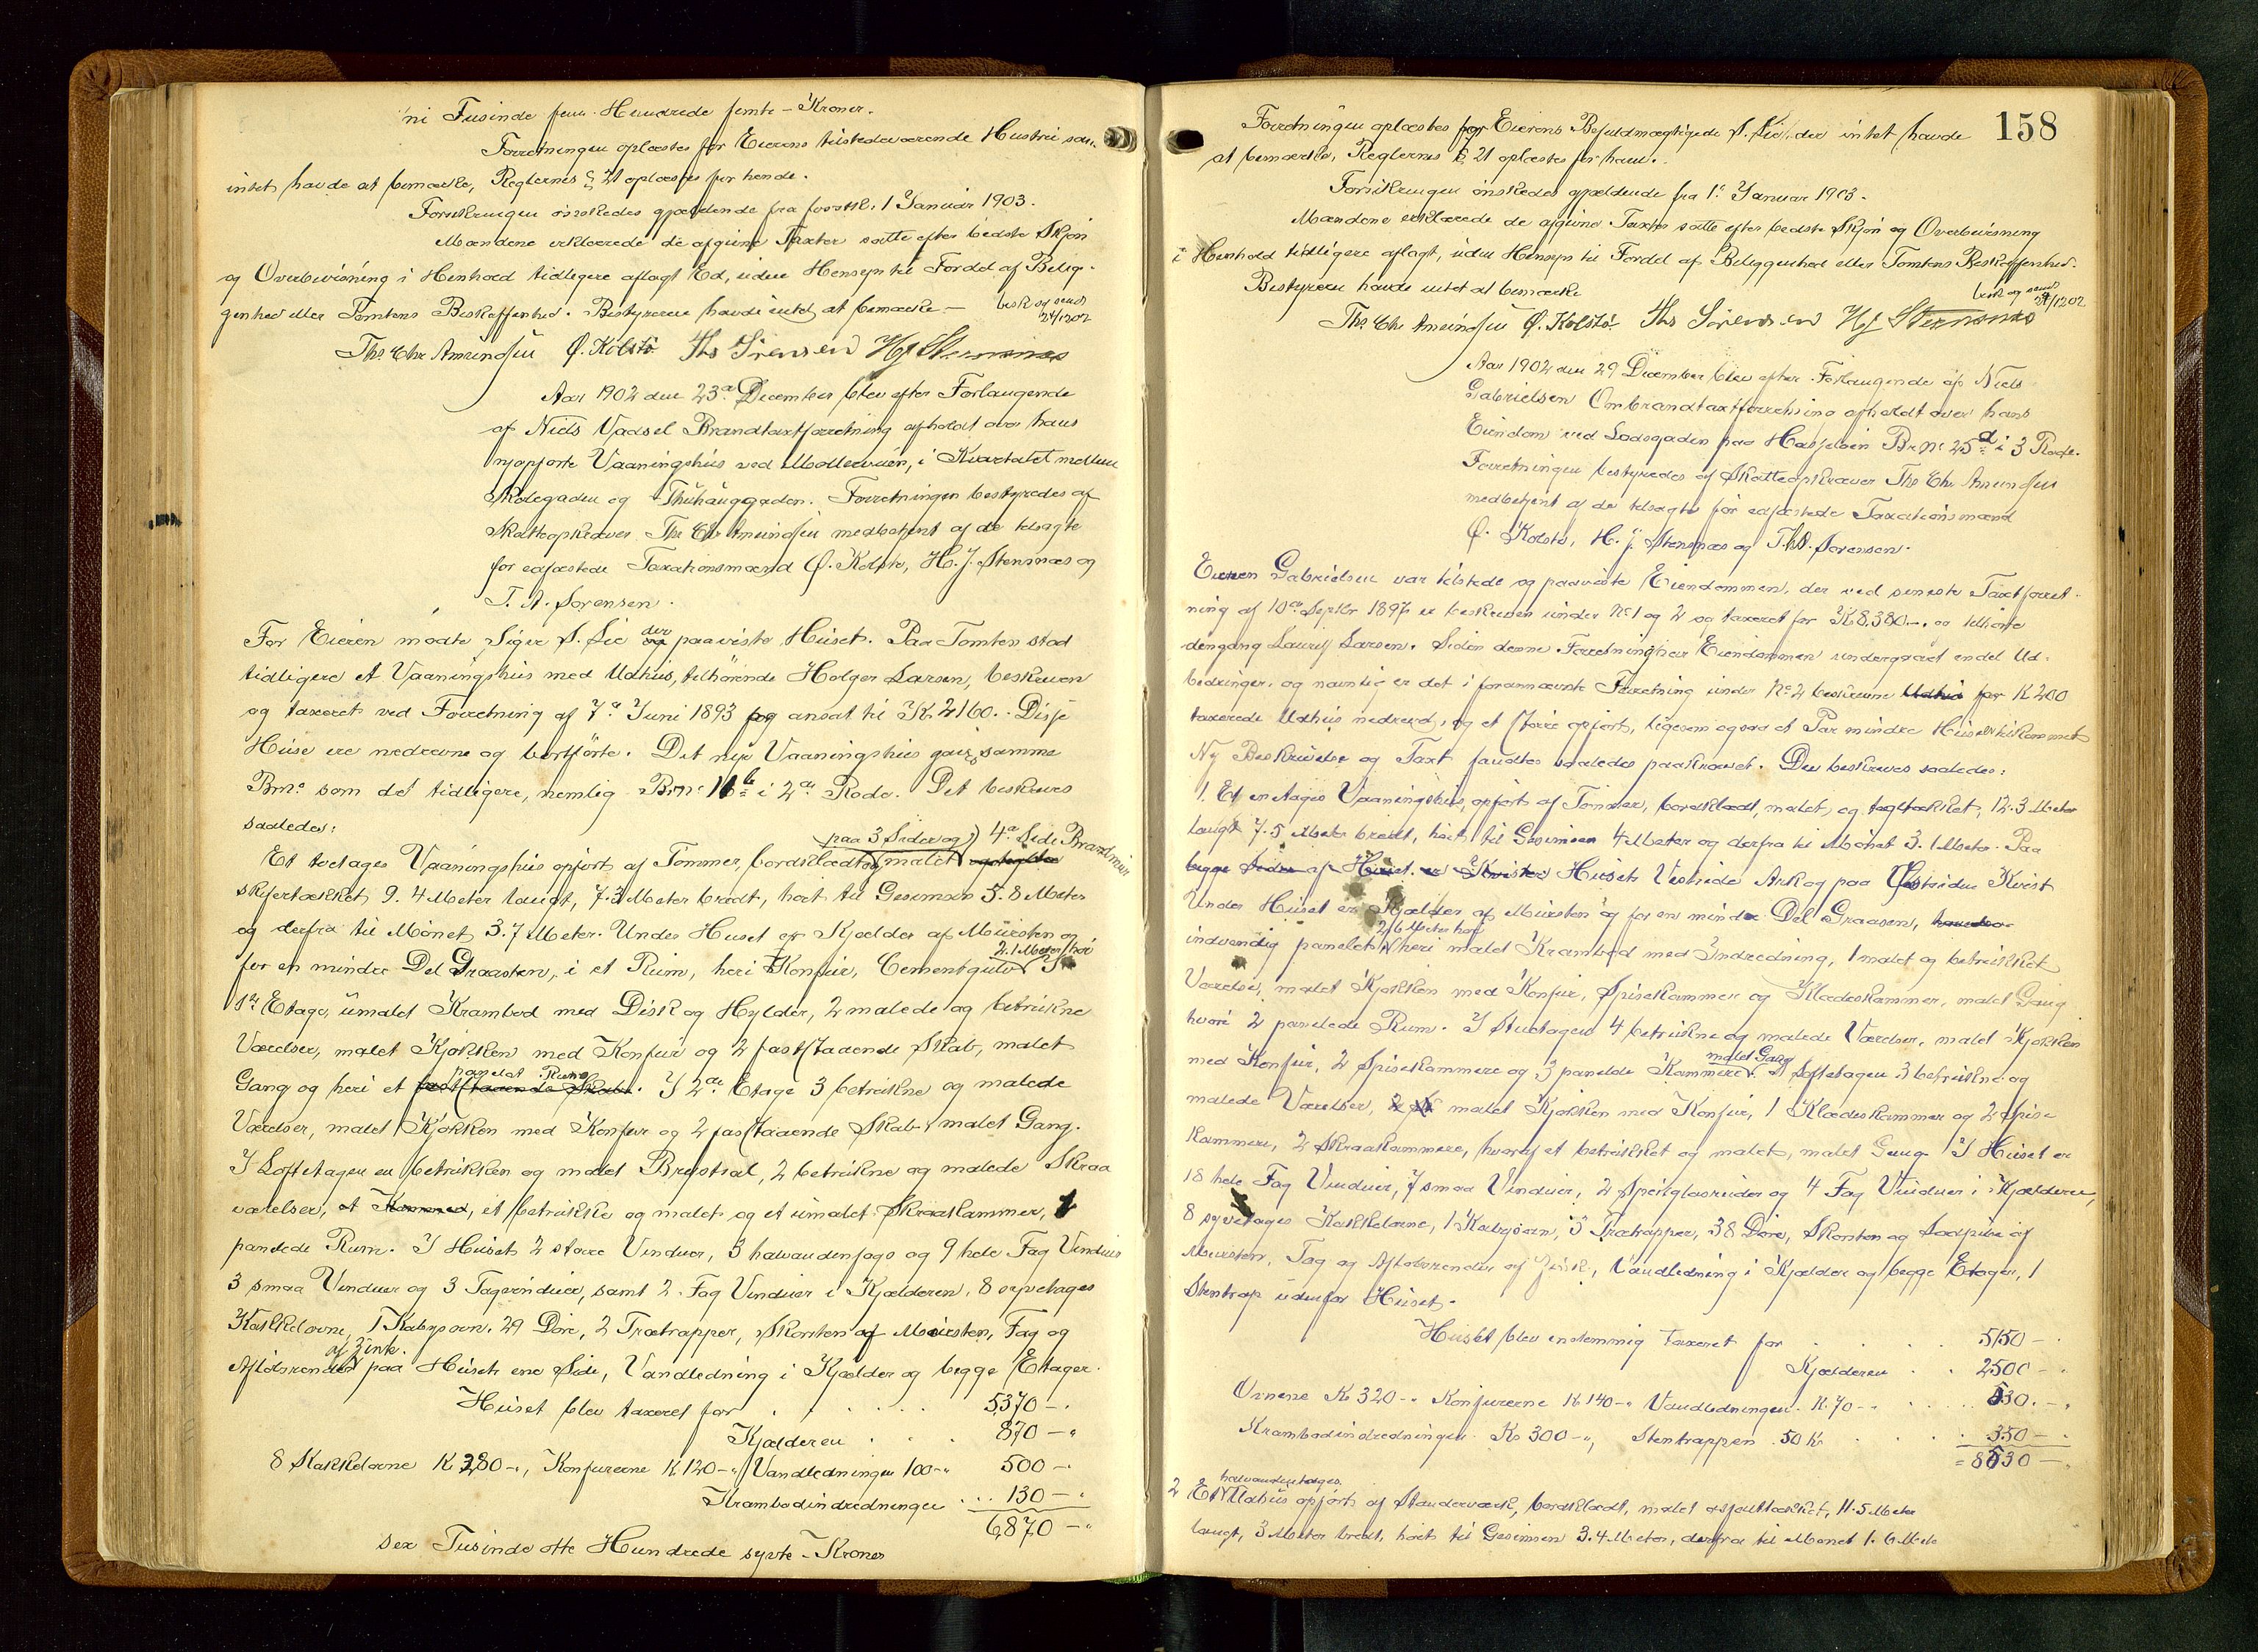 ni Tusinde fem Hundrede femti – Kroner.
Forretningen oplæstes for Eierens tilstedeværende Hustru som
intet havde at bemærke, Reglernes § 21 oplæstes for hende.
Forsikringen ønskedes gjældende fra førstk. 1 Januar 1903.
Mændene erklærede de afgivne Taxter satte efter bedste Skjøn
og Overbevisning i Henhold tidligere aflagt Ed, uden Hensyn til Fordel af Belig-
genhed eller Tomtens Beskaffenhed. Bestyreren havde intet at bemærke –
besk og sendt
24/12 02
Ths. Chr Amundsen Ø. Kolstø Ths Sørensen H J Stensnæs
Aar 1902 den 23de December blev efter Forlangende
af Niels Vadsel Brandtaxtforretning afholdt over hans
nyopførte Vaaningshus ved Møllerveien, i Kvartalet mellem
Skolegaden og Thuhauggaden. Forretningen bestyredes af
Skatteopkræver Ths Chr Amundsen medbetjent af de tilsagte
før edfæstede Taxationsmænd Ø. Kolstø, H. J. Stensnæs og
T. A. Sørensen.
For Eieren mødte Sigv. S. Lie og der paaviste Huset. Paa Tomten stod
tidligere et Vaaningshus med Udhus, tilhørende Holger Larsen, beskreven
og taxeret ved Forretning af 7de Juni 1893 og ansat til Kr 2160.- Disse
Huse ere nedrevne og bortførte. Det nye Vaaningshus gaves samme
Brno som det tidligere, nemlig Brno 16b i 2den Rode. Det beskreves
saaledes:
paa 3 Sider og 4de Side Brandmur
Et toetages Vaaningshus opført af Tømmer, bordklædt og malet og teglhæ
skifertækket 9.4 Meter langt, 7.3 Meter bredt, høit til Gesimsen 5.8 Meter
og derfra til Mønet 3.7 Meter. Under Huset er Kjælder af Mursten og
2.1 Meter høi
for en mindre Del Graasten, i et Rum, heri Konfur, Cementgulv I
1ste Etage, umalet Krambod med Disk og Hylder, 2 malede og betrukne
Værelser, malet Kjøkken med Konfur og 2 faststaaende Skab, malet
panelet Rum
Gang og heri et faststaaende Skab. I 2den Etage 3 betrukne og malede
Værelser, malet Kjøkken med Konfur og 2 faststaaende Skab malet Gang.
I Loftetagen en betrukken og malet Brystsal, 2 betrukne og malede Skraa
værelser, et Kammer, et betrukket og malet og et umalet Skraakammer,
panelede Rum. I Huset 2 større Vinduer, 3 halvandenfags og 9 hele Fag Vinduer
3 smaa Vinduer og 3 Tagvinduer, samt 2 Fag Vinduer i Kjælderen, 8 syvetages
Kakkelovne, 1 Kabysovn, 29 Døre, 2 Trætrapper, Skorsten af Mursten, Tag og
af Zink.
Afløbsrender paa Husets ene Side, Vandledning i Kjælder og begge Etager.
Huset blev taxeret for . . . . . 5370 – .
Kjælderen . . . 870 – „
8 Kakkelovne Kr 280 –, Konfurerne Kr 120 –„ Vandledningen 100 –„ 500 – .
Krambodindredningen . . . 130 – .
6870 – „
sex Tusinde otte Hundrede sytti – Kroner
158
Forretningen oplæstes for Eierens Befuldmægtigede S. Lie, der intet havde
at bemærke, Reglernes § 21 oplæstes for ham.
Forsikringen ønskedes gjældende fra 1ste Januar 1903.
Mændene erklærede de afgivne Taxter satte efter bedste Skjøn og Overbevisning
i Henhold tidligere aflagt, uden Hensyn til Fordel af Beliggenhed eller Tomtens Beskaffenhed.
Bestyreren havde intet at bemærke
besk og sendt
24/12 02
Ths. Chr Amundsen Ø. Kolstø Ths Sørensen H J Stensnæs
Aar 1902 den 29 December blev efter Forlangende af Niels
Gabrielsen Ombrandtaxtforretning afholdt over hans
Eiendom ved Lodsgaden paa Hasseløen Brno 25d i 3 Rode.
Forretningen bestyredes af Skatteopkræver Ths Chr Amundsen
medbetjent af de tilsagte før edfæstede Taxationsmænd
Ø. Kolstø, H. J. Stensnæs og Ths. Sørensen.
Eieren Gabrielsen var tilstede og paaviste Eiendommen, der ved seneste Taxtforret-
ning af 10de Septbr 1897 er beskreven under No 1 og 2 og taxeret for Kr 8,380.–, og tilhørte
dengang Laurits Larsen. Siden denne Forretning har Eiendommen undergaaet endel Ud-
bedringer, og navnlig er det i forannævnte Forretning under No 2 beskrevne Udhus for Kr 200
taxerede Udhus nedrevet, og et større opført, ligesom ogsaa et Par mindre Huse er tilkommet
Ny Beskrivelse og Taxt fandtes saaledes paakrævet. Der beskreves saaledes:
1. Et en etages Vaaningshus, opført af Tømmer, bordklædt, malet og teglhækket, 12.3 Meter
langt 7.5 Meter bredt, høit til Gesimsen 4 Meter og derfra til Mønet 3.1 Meter. Paa
begge Sider af Huset er Kvister Husets Vestside Ark og paa Østsiden Kvist
Under Huset er Kjælder af Mursten og for en mindre Del Graasten,
2.6 Meter høi
indvendig panelet heri malet Krambod med Indredning, 1 malet og betrukket
Værelse, malet Kjøkken med Konfur, Spisekammer og Klædeskammer, malet Gang
hvori 2 panelede Rum. I Stuetagen 4 betrukne og malede Værelser, malet Kjøkken
malet Gang
med Konfur, 2 Spisekammere og 3 panelede Kammere. I Loftetagen 3 betrukne og
malede Værelser, malet Kjøkken med Konfur, 1 Klædeskammer og 2 Spise-
kammere, 2 Skraakammere, hvoraf et betrukket og malet, malet Gang. I Huset er
18 hele Fag Vinduer, 7 smaa Vinduer, 2 Speilglasruder og 4 Fag Vinduer i Kjælderen,
8 syvetages Kakkelovne, 1 Kabysovn, 3 Trætrapper, 38 Døre, Skorsten og Sodpibe af
Mursten, Tag og Afløbsrender af Zink, Vandledning i Kjælder og begge Etager, 1
Stentrap udenfor Huset.
Huset blev enstemmig taxeret for . . . . 5150 – .
Kjælderen . . 2500 – .
Ovnene Kr 320 –„ Konfurerne Kr 140 –„ Vandledningen Kr. 70 –„ . . . 530. – „
Krambodindredningen Kr 300 –„, Stentrappen 50 Kr . . . . 350 – .
= 8530 – .
halvandenetages
2 Et Udhus opført af Standerværk, bordklædt, malet asfalttækket, 11.5 Meter
langt, 3 Meter bredt, høit til Gesimsen 3.4 Meter, derfra til Mønet 1.6 Mete